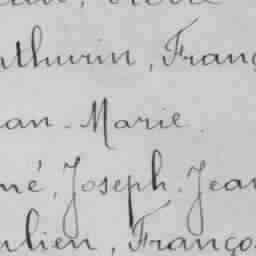 athurin, Franç
ean-Marie.
né, Joseph, Jean
ulien, Franço